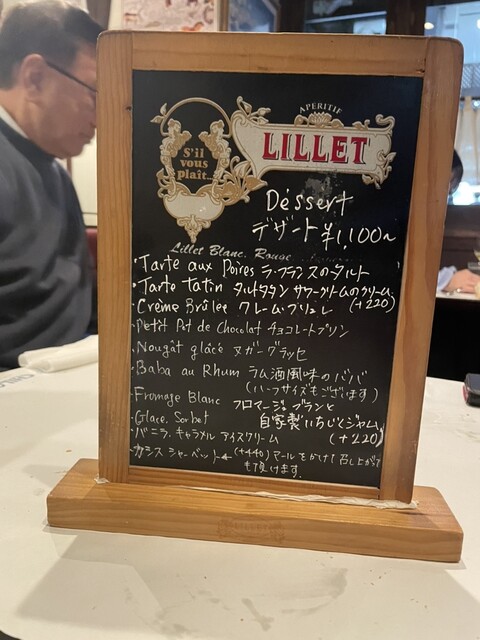 S'il
vous
plaît...
APERITIF
LILLET
Déssert
デザート ¥1,100~
Lillet Blanc. Rouge
・Tarte aux Poires ラ・フランスのタルト
・Tarte Tatin タルトタタン サワークリームのクリーム (+220)
・Crème Brûlée クレーム・ブリュレ
・Petit Pot de Chocolat チョコレートプリン
・Nougât glácé ヌガーグラッセ
・Baba au Rhum ラム酒風味のババ
(ハーフサイズもございます)
・Fromage Blanc フロマージュブランと
自家製いちじくジャム
(+220)
・Glace. Sorbet
・バニラ. キャラメル アイスクリーム
・カシス シャーベット (+440) マールをかけて召し上がっても頂けます.